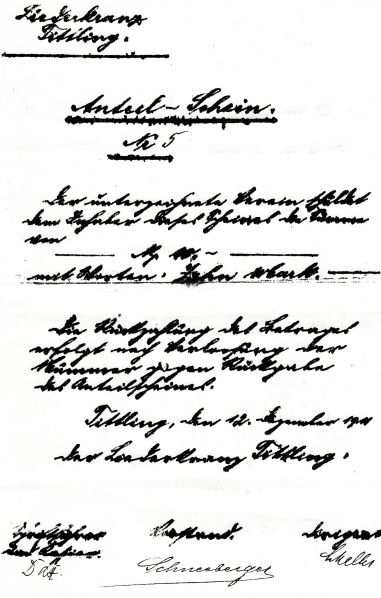 Liederkranz
Tittling.
Anteil-Schein.
Nr 5
Der unterzeichnete Verein schuldet
dem Inhaber dieses Scheines die Summe
von
M 10.-
mit Worten: Zehn Mark.
Die Rückzahlung des Betrages
erfolgt nach Verlosung der
Nummer gegen Rückgabe
des Anteilscheines.
Tittling, den 12. Dezember
Der Liederkranz Tittling.
Schriftführer Vorstand. Dirigent
und Kassier.
Schneeberger